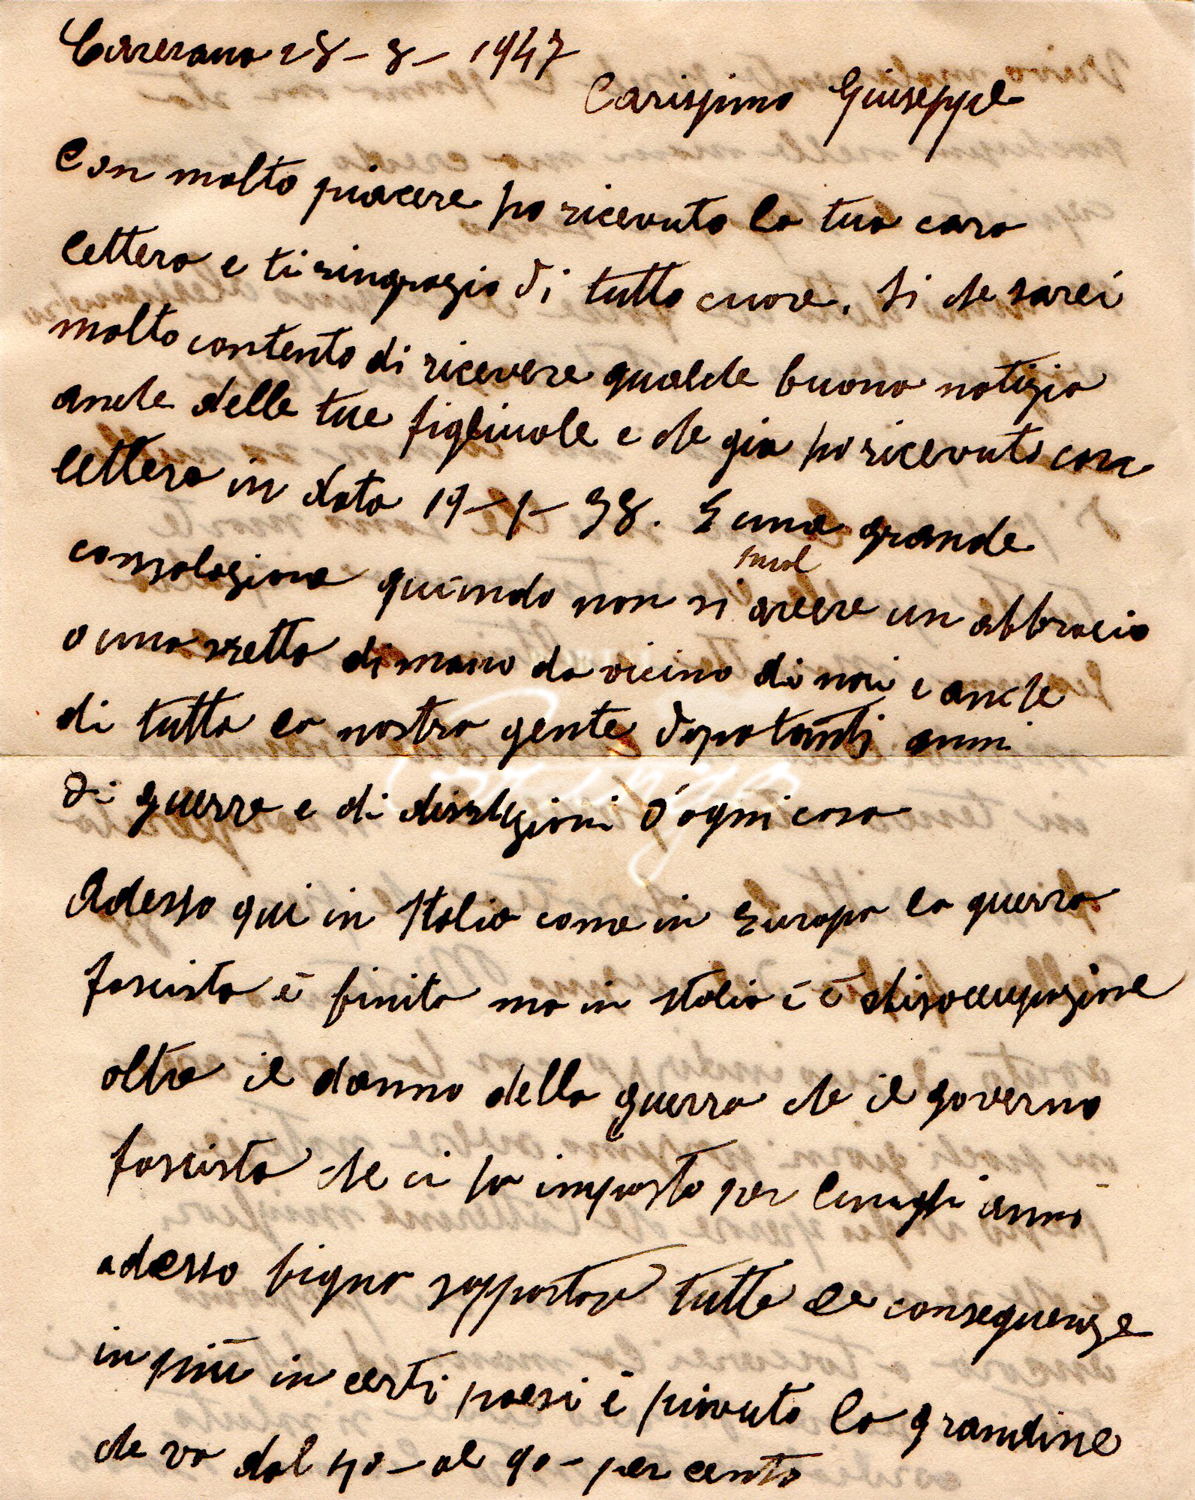 Carrerano 28-8-1947
Carissimo Giuseppe
Con molto piacere ho ricevuto la tua cara
lettera e ti ringrazio di tutto cuore. Si che sarei
molto contento di ricevere qualche buona notizia
anche delle tue figliuole e che gia ho ricevuto cara
lettera in data 19-1-38. E una grande
consolazione quando non si
puol
avere un abbracio
o una stretta di mano da vicino di noi e anche
di tutta la nostra gente dopo tanti anni
Di guerra e di distruzioni d'ogni cosa
Adesso qui in Italia come in Europa la guerra
fascista è finita ma in Italia c è disoccupazione
oltre il danno della guerra che il governo
fascista che ci ha imposto per lunghi anni
adesso bigna sopportare tutte le conseguenze
in più in certi paesi è piovuto la grandine
che va dal 40 - al 90 - per cento